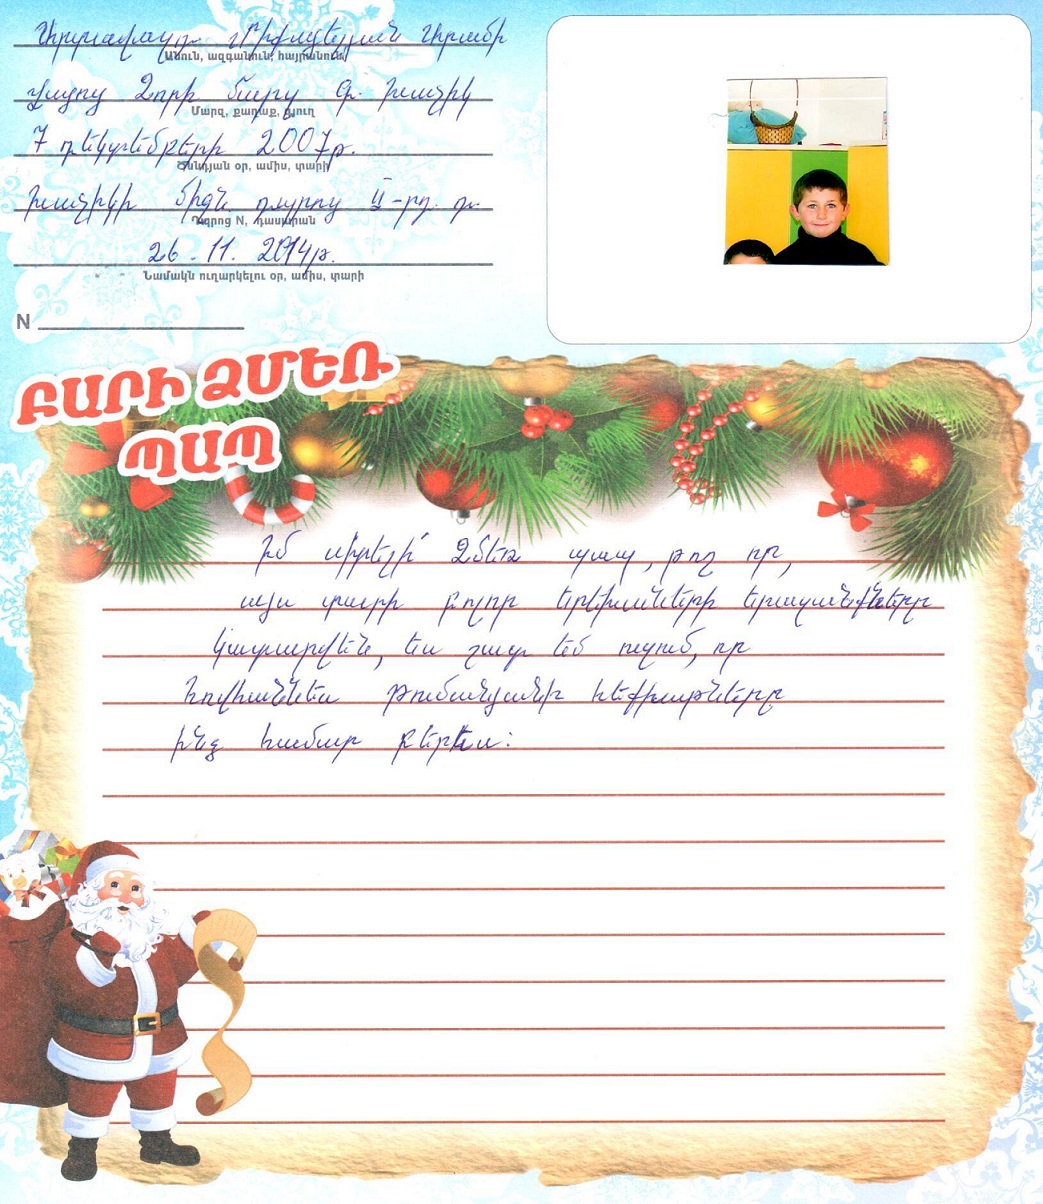 Միքայելյան Արամի
Անուն, ազգանուն, հայրանուն
Վայոց Ձորի մարզ գ. Խաչիկ
Մարզ, քաղաք, գյուղ
7 դեկտեմբերի 2007թ.
Ծննդյան օր, ամիս, տարի
Խաչիկի միջն. դպրոց II-րդ դ.
Դպրոց N, դասարան
26.11.2014թ.
Նամակն ուղարկելու օր, ամիս, տարի
N
ԲԱՐԻ ՁՄԵՌ
ՊԱՊ
Իմ սիրելի՛ Ձմեռ պապ, թող որ,
այս տարի բոլոր երեխաների երազանքները
կատարվեն, ես շատ եմ ուզում, որ
Հովհաննես Թումանյանի հեքիաթները
ինձ համար բերես: